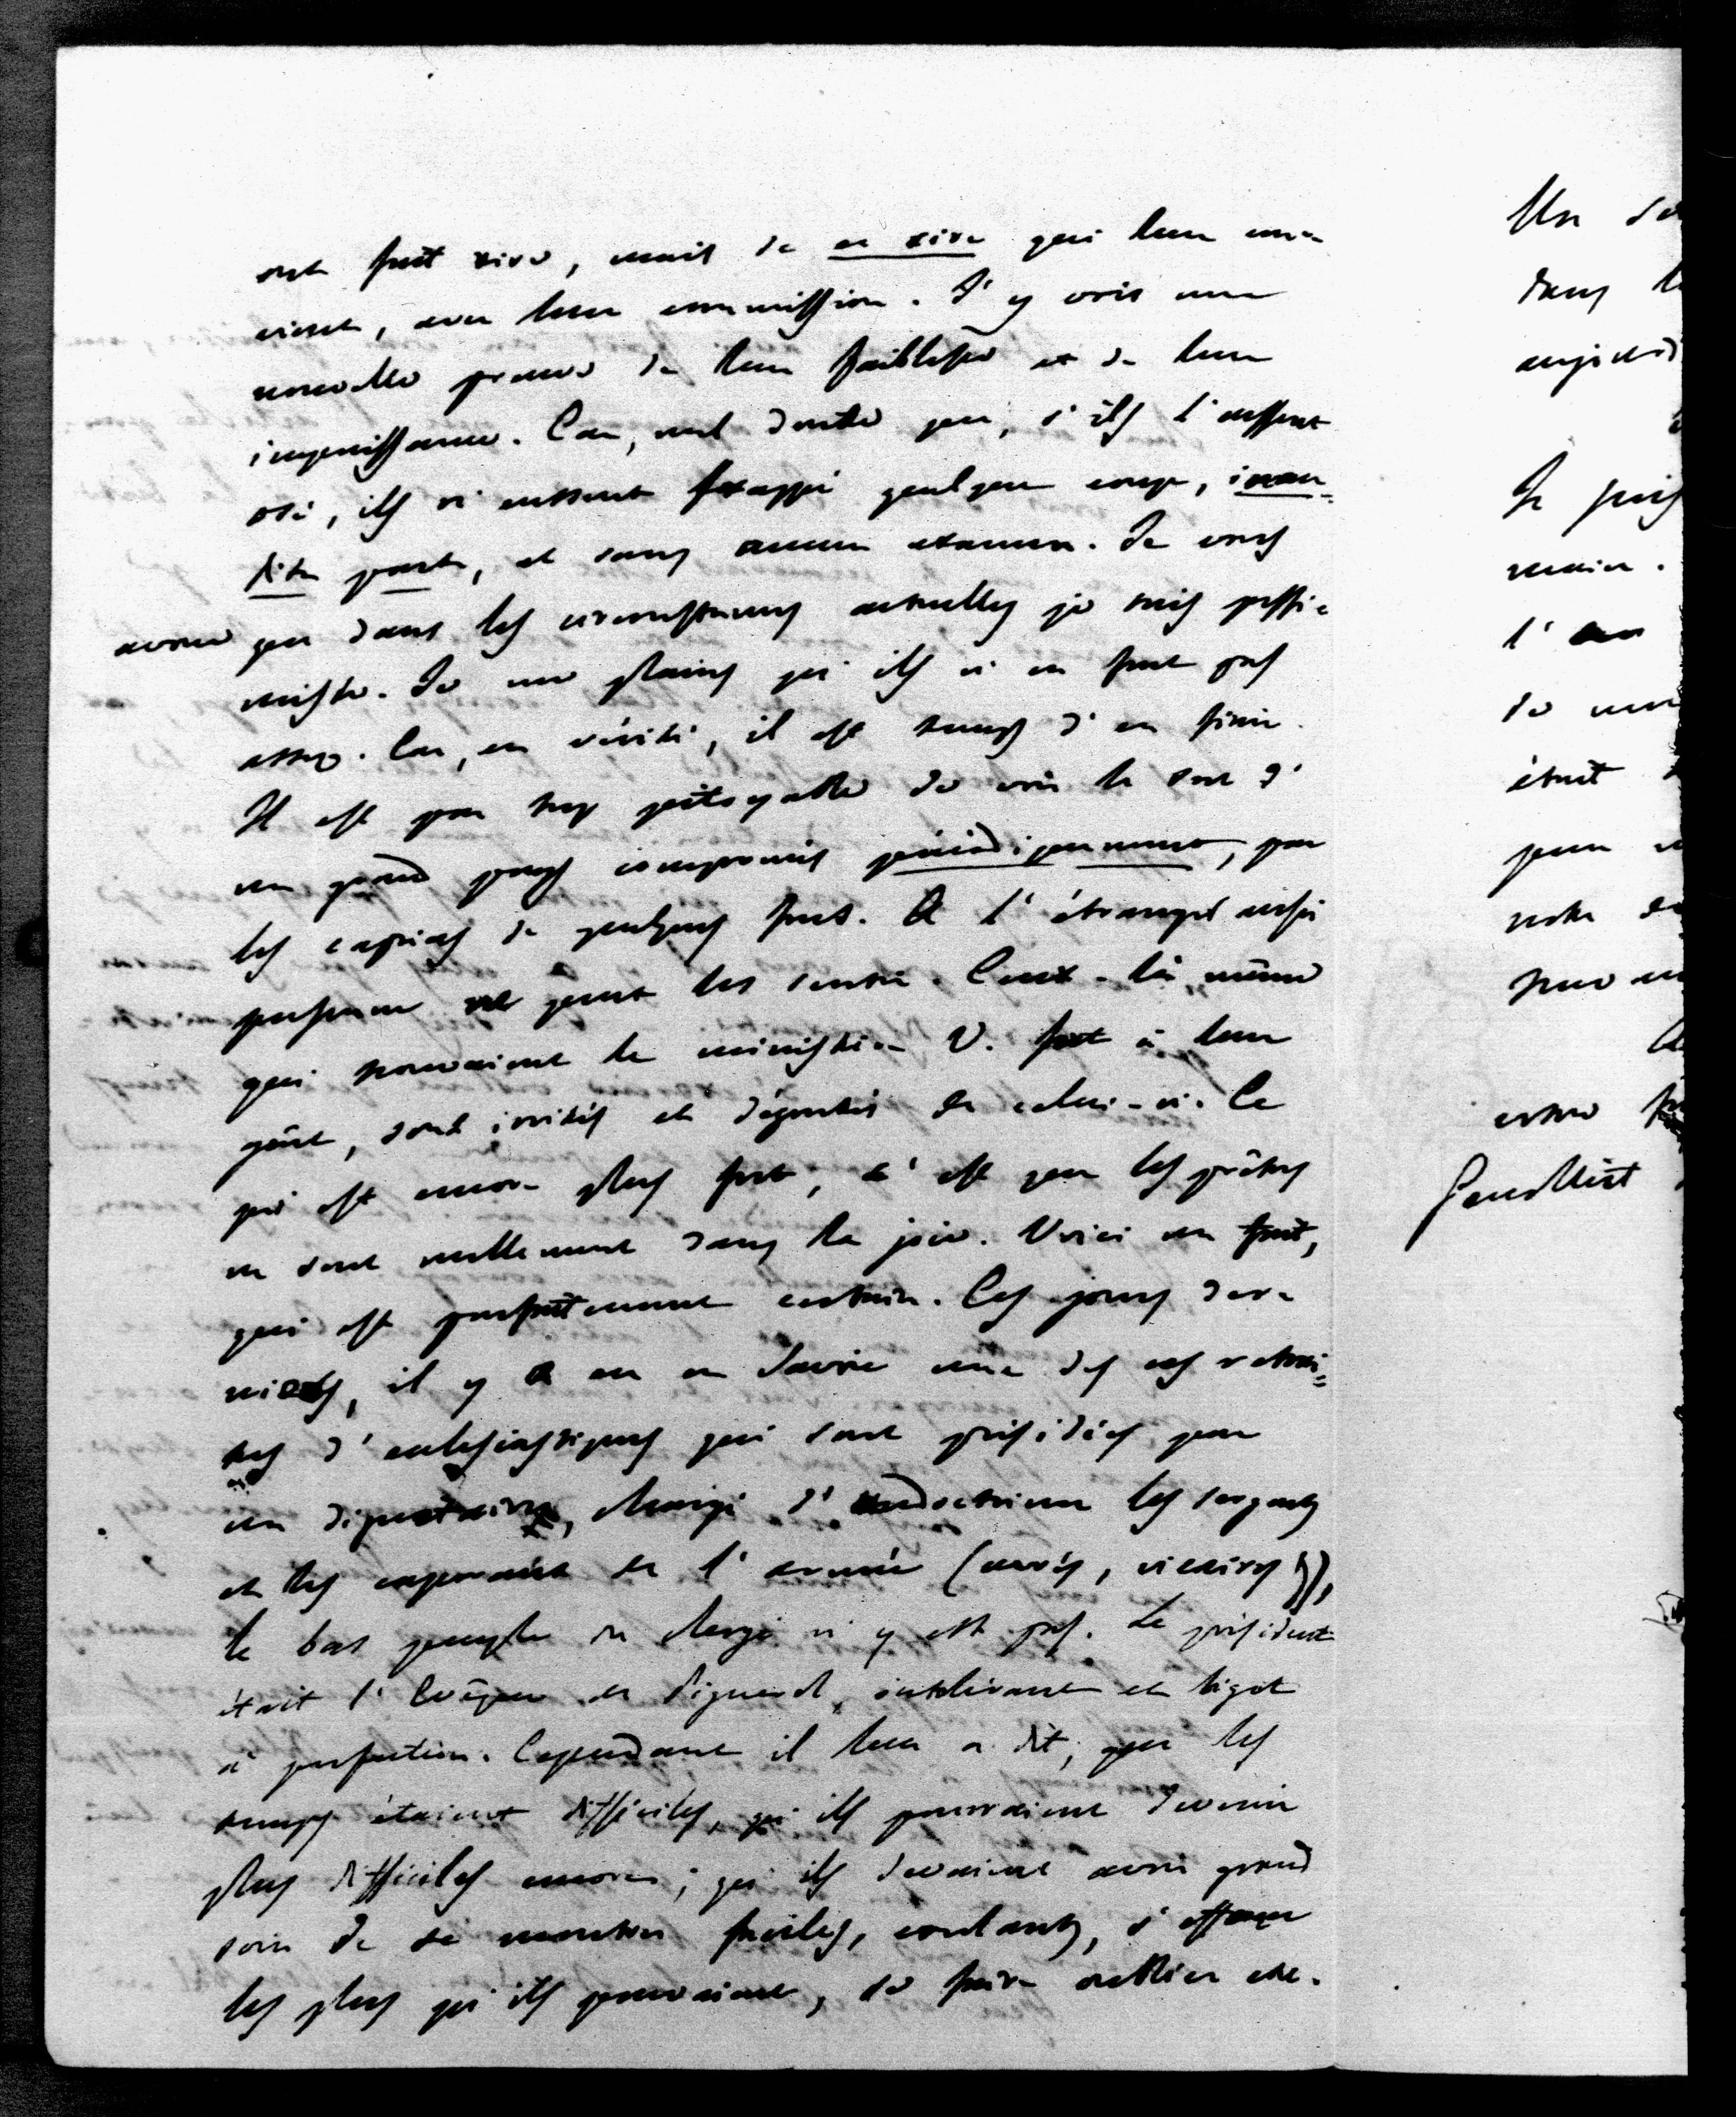 ont fait rire, mais de ce rire qui leur
vient, avec leur commission. J'y vois une
nouvelle preuve de leur faiblesse et de leur
impuissance. Car, nul doute que, s'ils l'eussent
osé, ils n'eussent frappé quelque coup, inau-
dita parte, et sans aucun examen. Je vous
avoue que dans les circonstances actuelles je suis pessi-
miste. Je me plains qu'ils n'en font pas
assez. Car, en vérité, il est temps d'en finir.
Il est par trop pitoyable de voir le sort d'
un grand pays compromis périodiquement, par
les caprices de quelques fous. A l'étranger aussi
personne ne peut les sentir. Ceux-là même
qui trouvaient le ministère V. fort à leur
goût, sont irrités et dégoûtés de celui-ci. Ce
qui est encore plus fort, c'est que les prêtres
ne sont nullement dans la joie. Voici un fait,
qui est parfaitement certain. Ces jours der-
niers, il y a eu en Savoie une de ces retrai-
tes d'ecclésiastiques qui sont présidées par
un dignitaire, chargé d'endoctriner les sergents
et les caporaux de l'armée (curés, vicaires),
le bas peuple du clergé n'y est pas. Le président
était l'Evêque de Pignerol, intolérant et bigot
à perfection. Cependant il leur a dit, que les
temps étaient difficiles, qu'ils pourraient devenir
plus difficiles encore; qu'ils devaient avoir grand
soin de se montrer faciles, coulants, s'effacer
les plus qu'ils pouvaient, se faire oublier etc.
Un
dans
Je puis
main.
l'
de
était
peu
notre